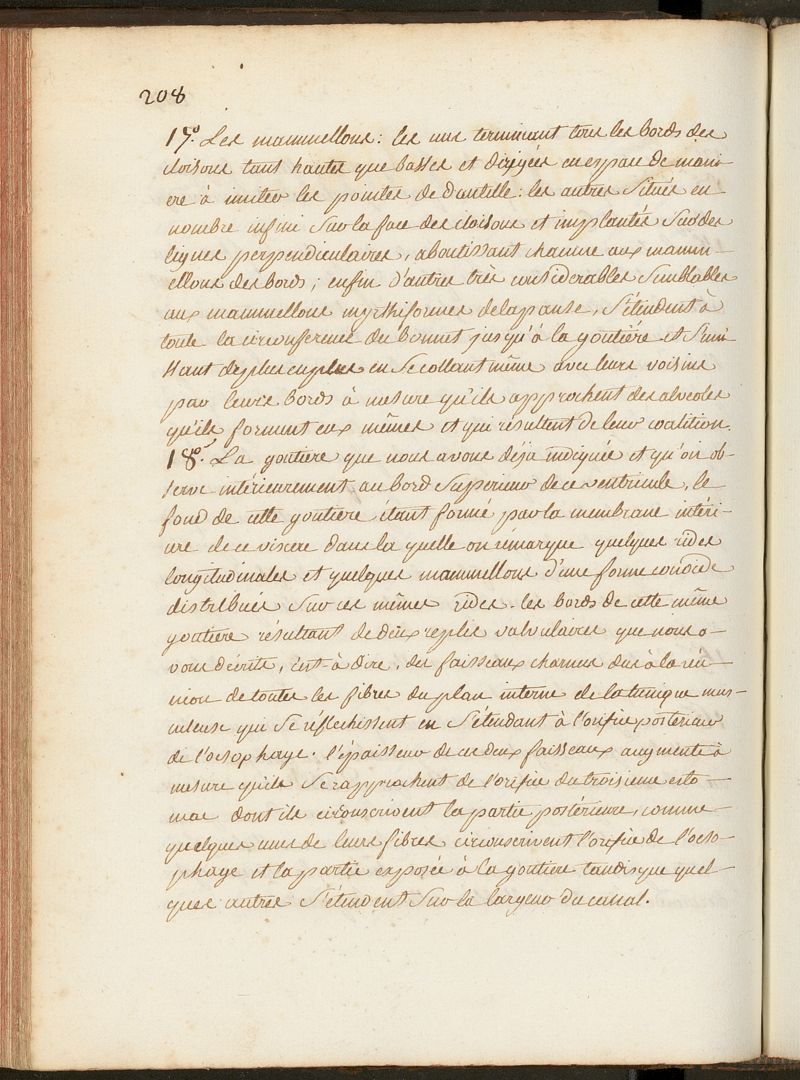 208
17.° Les mammellons: les uns terminant tous les bords des
cloisons tant hautes que basses et dirigées en espau de mani-
ere à imiter les pointes de dantelle: les autres situés en
nombre infini sur la face des cloisons et implantés sur des
lignes perpendiculaires, aboutissant chacune aux mamm-
ellons des bords; enfin d'autres très considerables semblables
aux mammellons myrthiformes de la panse, s'étendent à
toute la circonference du bonnet jusqu'à la goutiére et s'uni-
ssant de plus en plus en se collant même avec leurs voisins
par leurs bords à mesure qu'ils approchent des alveoles
qu'ils forment eux mêmes et qui résultent de leur coalition.
18.° La goutiere que nous avons déja indiquée et qu'on ob-
serve intérieurement au bord superieur de ce ventricule, le
fond de cette goutiere étant formé par la membrane intéri-
ure de ce viscere dans la quelle on rémarque quelques rides
longitudinales et quelques mammellons d'une forme conoïde
distribués sur ces mêmes rides. les bords de cette même
goutiere résultant de deux replis valvulaires que nous a-
vons décrits, c'est-à-dire, des faisseaux charnus dus à la réu-
nion de toutes les fibres du plan interne de la tunique mus-
culeuse qui se réflechissent en s'étendant à l'orifice posterieur
de l'oesophage. l'épaisseur de ces deux faisseaux augmente à
mesure qu'ils se rapprochent de l'orifice du troisieme esto-
mac dont ils circonscrivent la partie postérieure, comme
quelques unes de leurs fibres circonscrivent l'orifice de l'oeso-
phage et la partie exposée à la goutiere tandis que quel-
ques autres s'étendent sur la largeur du canal.